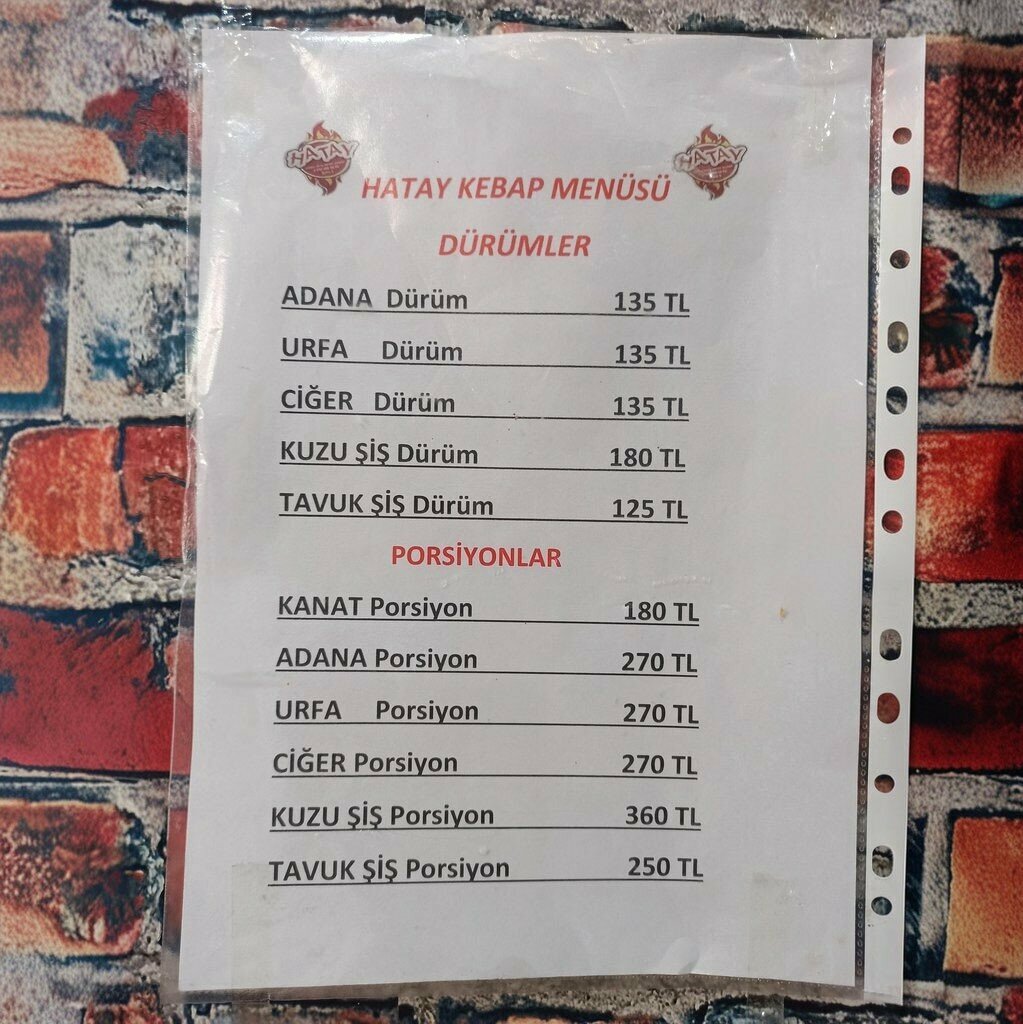 HATAY
HATAY
HATAY KEBAP MENÜSÜ
DÜRÜMLER
ADANA Dürüm 135 TL
URFA Dürüm 135 TL
CİĞER Dürüm 135 TL
KUZU ŞİŞ Dürüm 180 TL
TAVUK ŞİŞ Dürüm 125 TL
PORSİYONLAR
KANAT Porsiyon 180 TL
ADANA Porsiyon 270 TL
URFA Porsiyon 270 TL
CİĞER Porsiyon 270 TL
KUZU ŞİŞ Porsiyon 360 TL
TAVUK ŞİŞ Porsiyon 250 TL